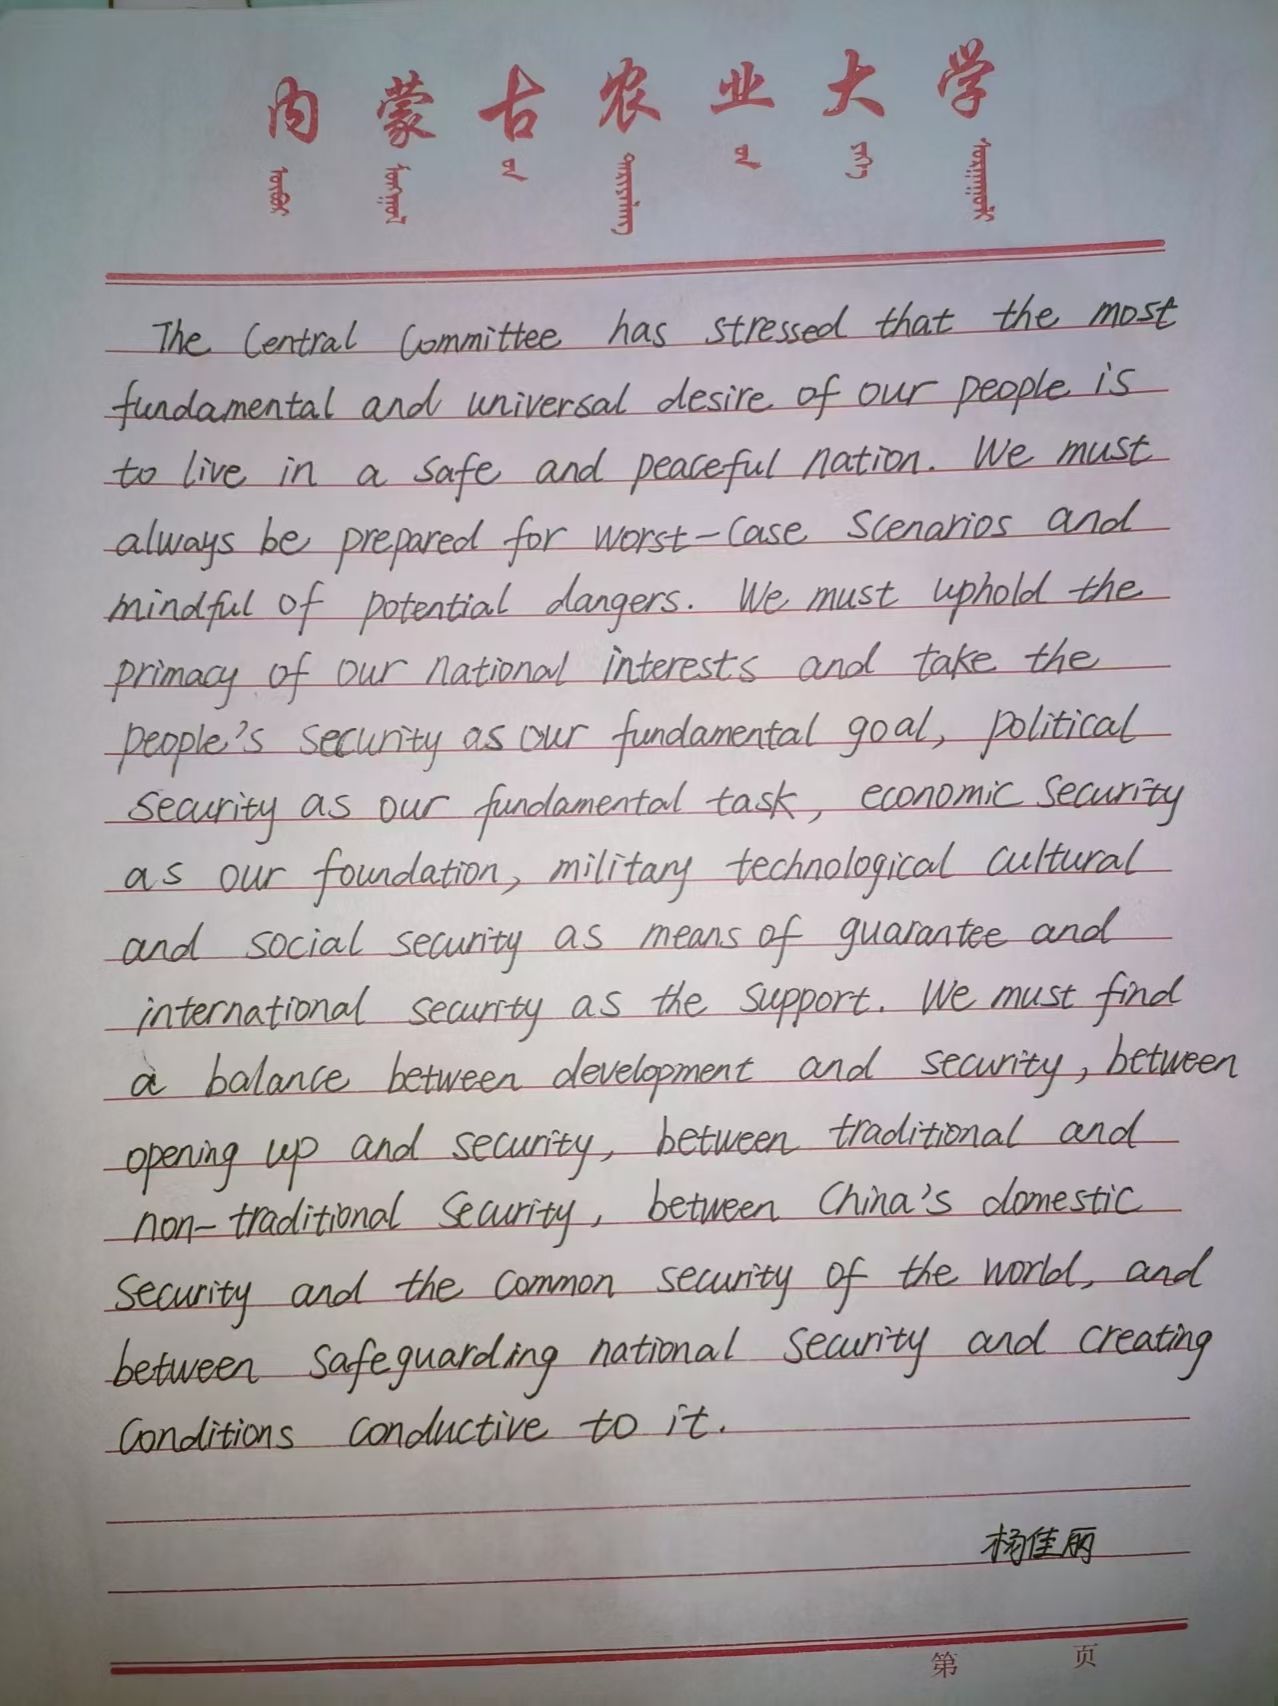 内蒙古农业大学
The Central Committee has stressed that the most
fundamental and universal desire of our people is
to live in a safe and peaceful nation. We must
always be prepared for worst-case scenarios and
mindful of potential dangers. We must uphold the
primacy of our national interests and take the
people's security as our fundamental goal, political
security as our fundamental task, economic security
as our foundation, military technological cultural
and social security as means of guarantee and
international security as the support. We must find
a balance between development and security, between
opening up and security, between traditional and
non-traditional security, between China's domestic
security and the common security of the world, and
between safeguarding national security and creating
conditions conductive to it.
杨佳丽
第 页